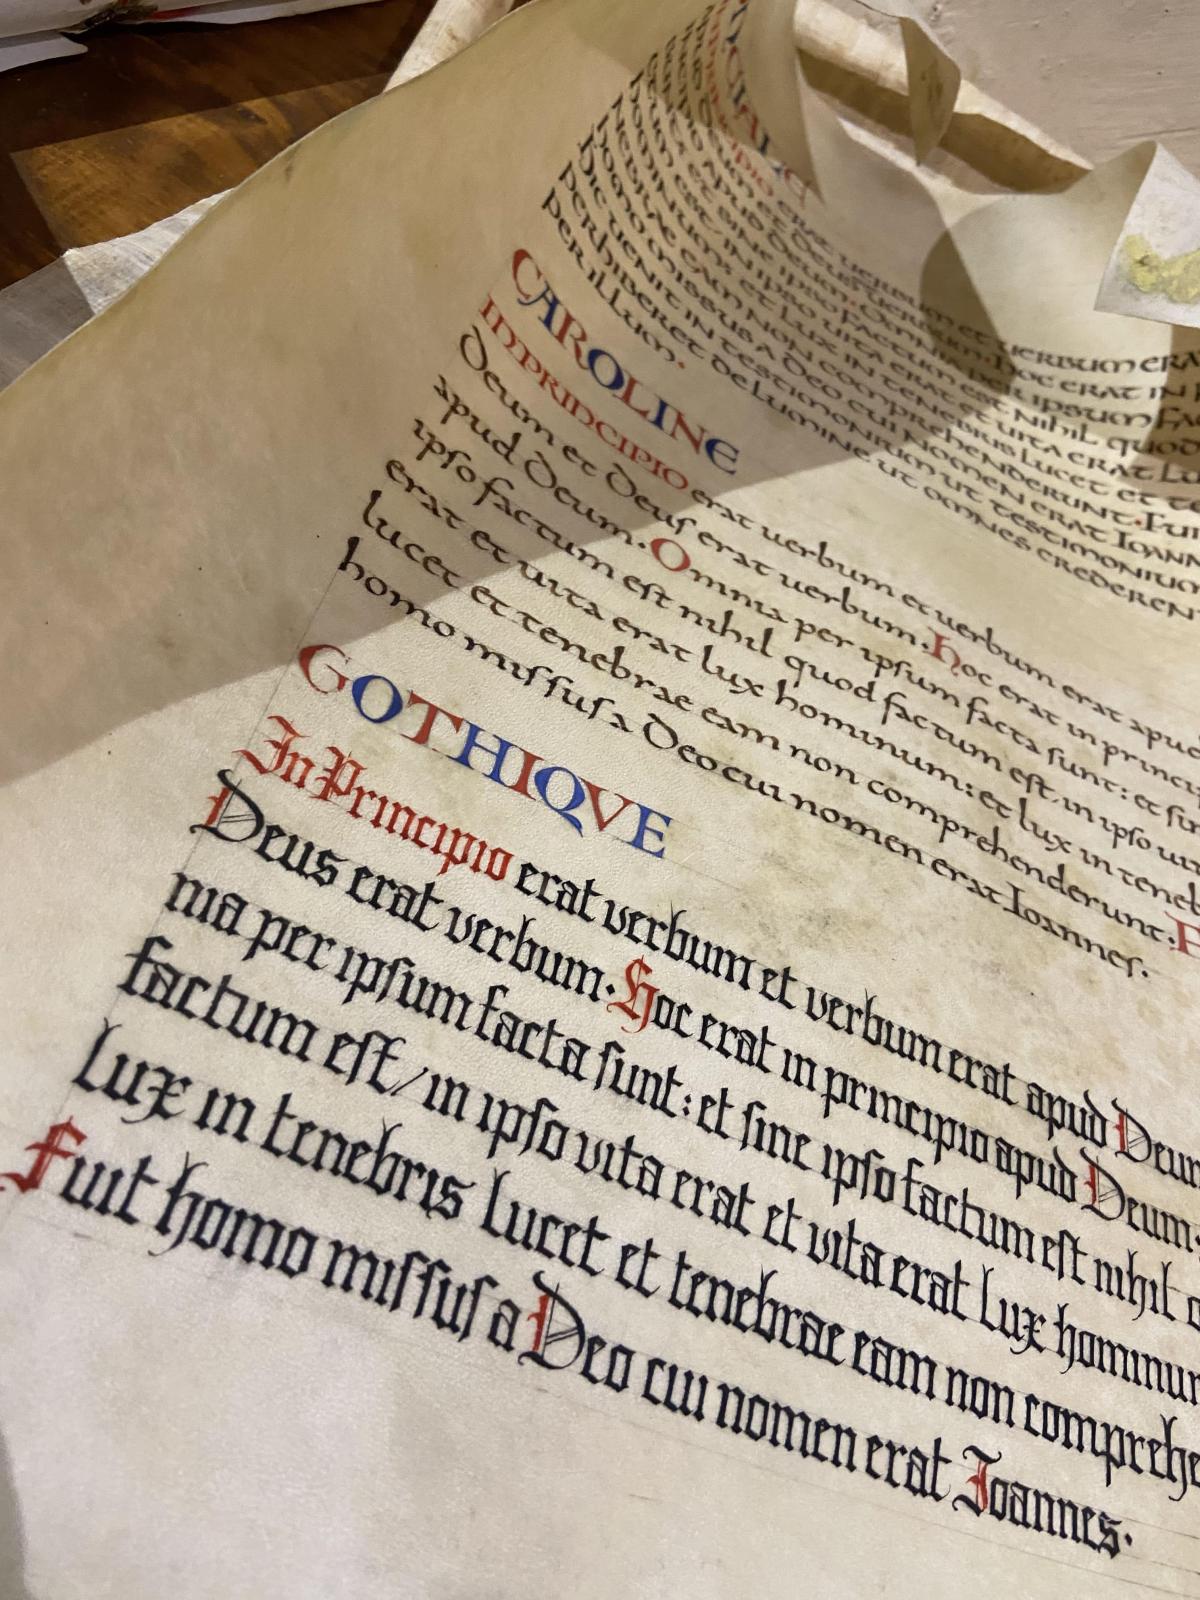 erat uerbum et uerbum era
hoc erat in
omnia per ipsum fac
factum est nihil quod
in ipso uita erat et uita erat lu
et lux in tenebris lucet et te
nebrae eam non comprehenderunt. Fui
homo missus a Deo cui nomen erat Ioann
hic uenit in testimonium ut testimonium
perhiberet de lumine ut omnes crederen
per illum.
CAROLINE
INPRINCIPIO erat uerbum et uerbum erat apud
Deum et Deuſ erat uerbum. Hoc erat in princi
apud Deum. Omnia per ipſum facta ſunt: et ſin
ipſo factum eſt nihil quod factum eſt, in ipſo
erat et uita erat lux hominum: et lux in teneb
lucet et tenebrae eam non comprehenderunt. F
homo miſſuſ a Deo cui nomen erat Ioanneſ.
GOTHIQVE
In Principio erat verbum et verbum erat apud Deum
Deus erat verbum. Hoc erat in principio apud Deum.
nia per ipſum facta ſunt: et ſine ipſo factum eſt nihil
factum eſt/in ipſo vita erat et vita erat lux hominum
lux in tenebris lucet et tenebrae eam non comprehe
Fuit homo miſſuſ a Deo cui nomen erat Ioannes.